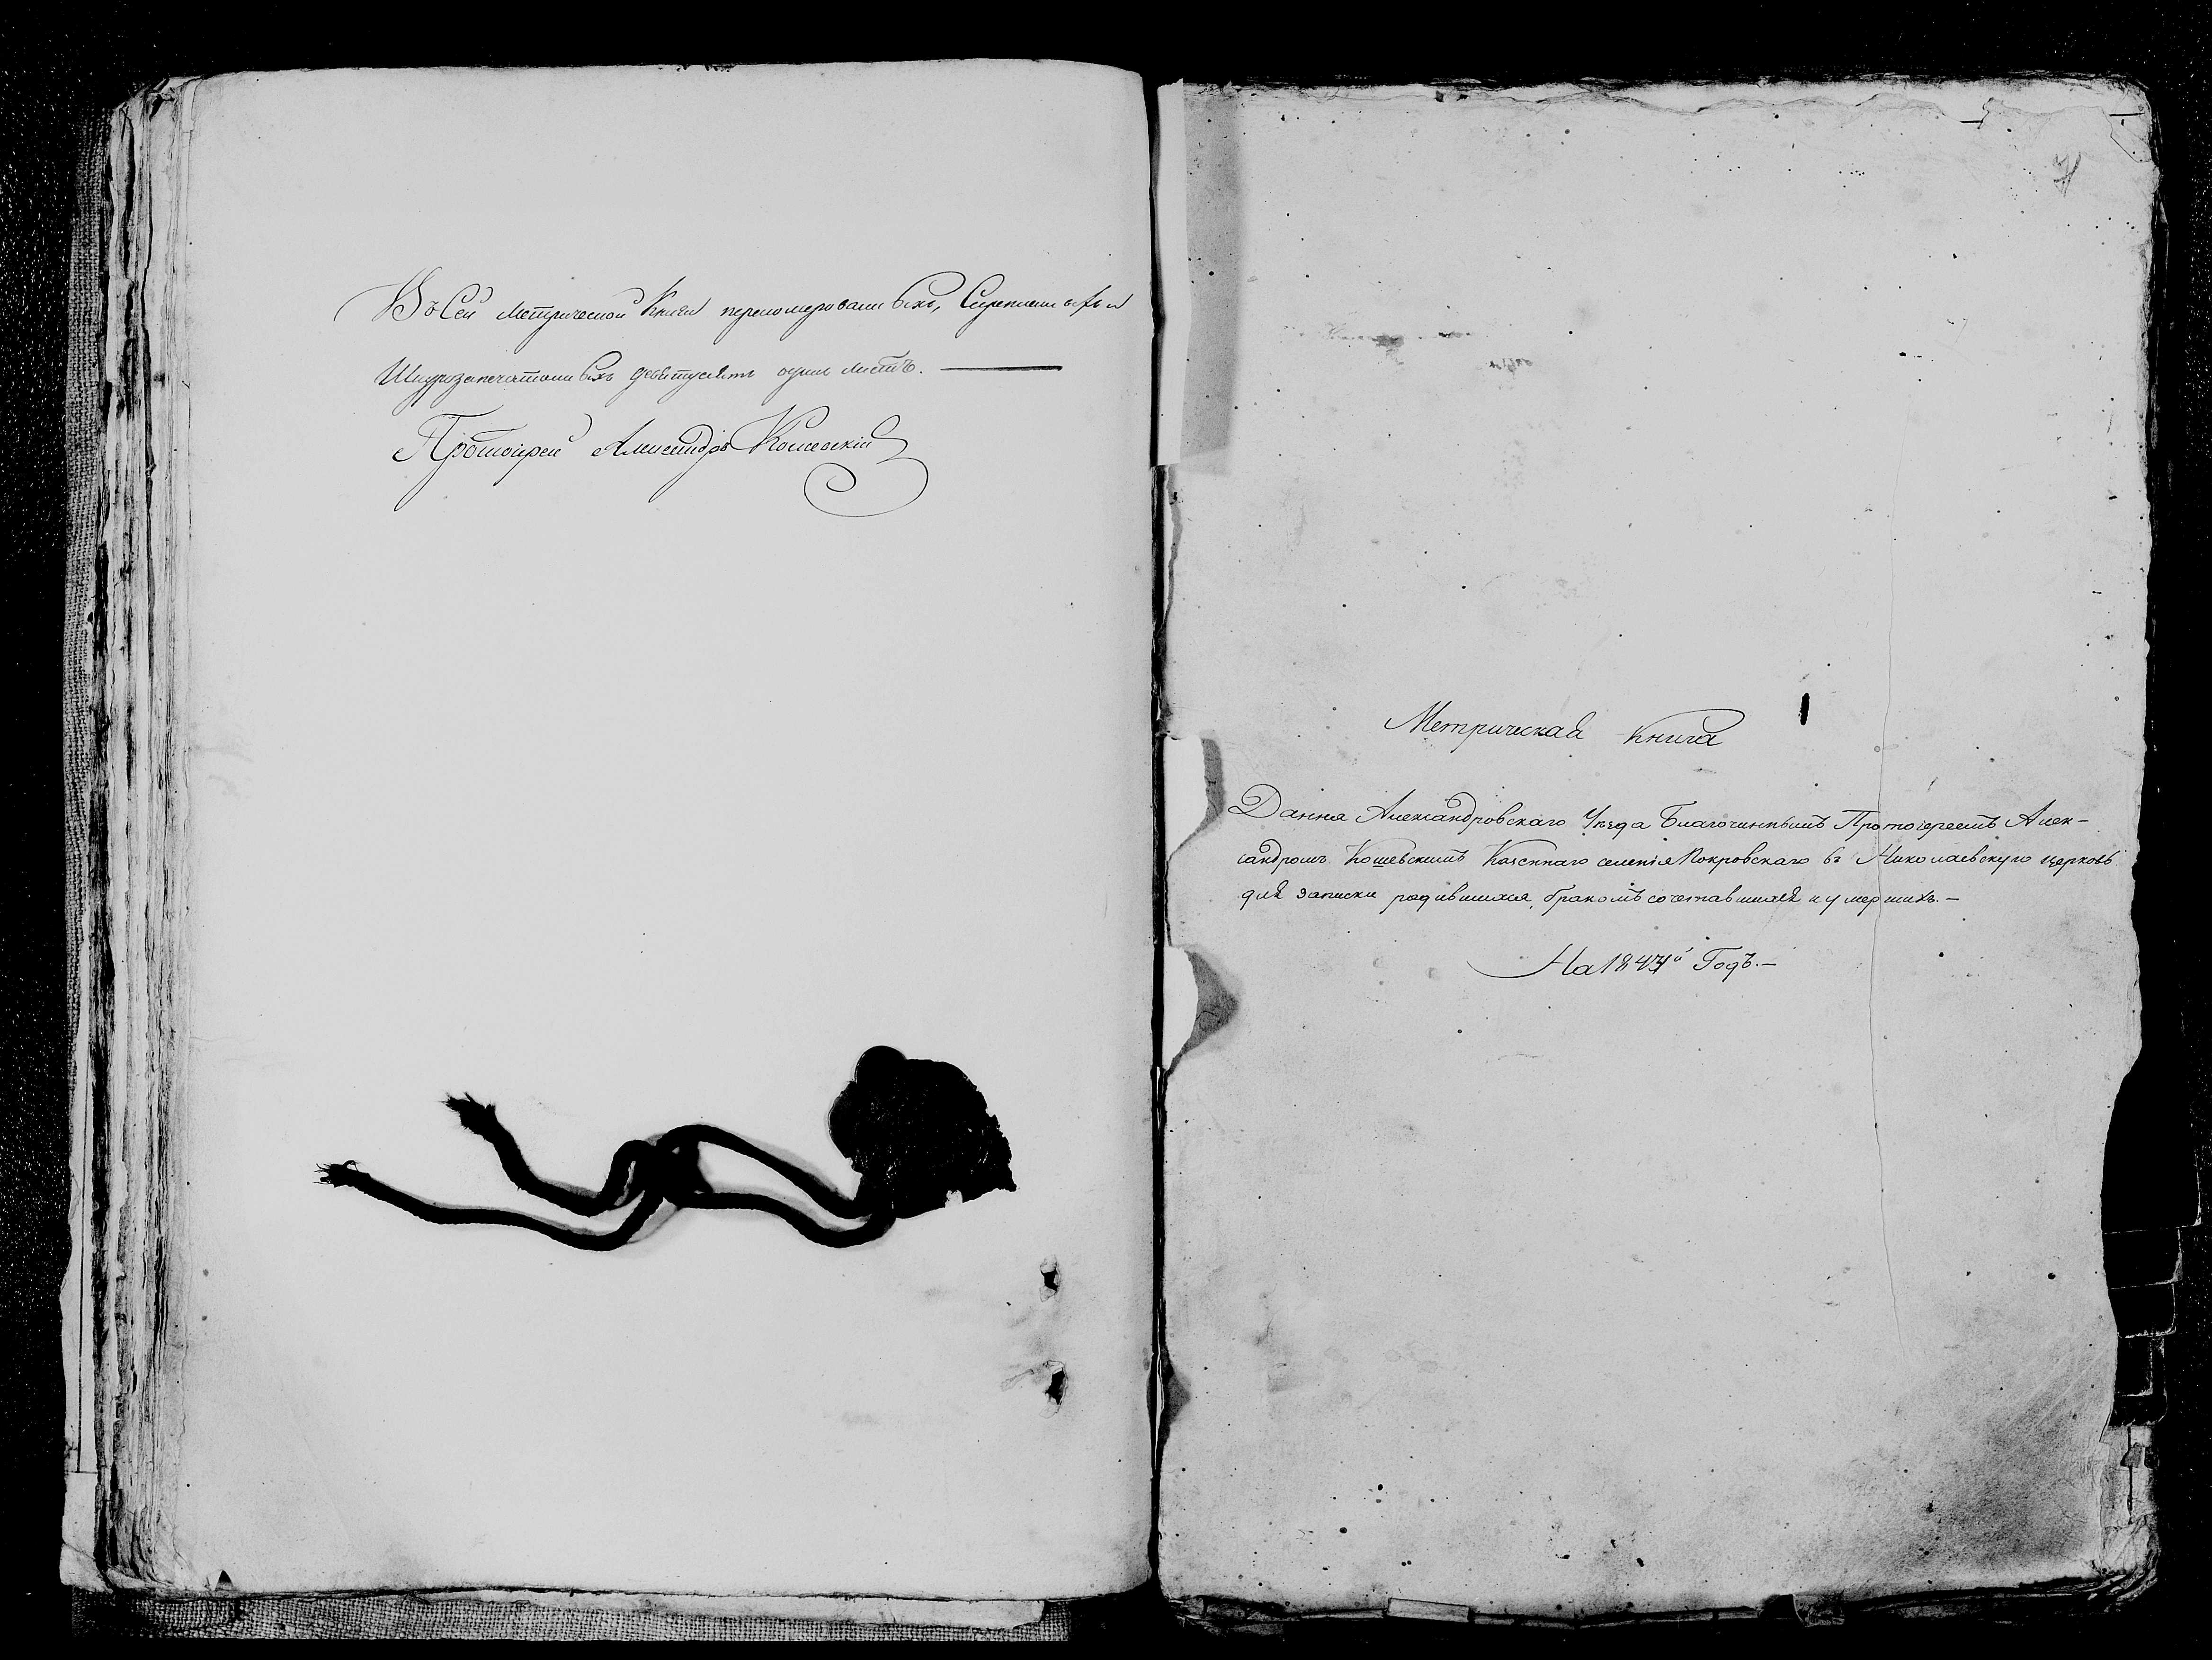 Въ Сей Метрической Книги перономерованныхъ, Скрепленныхъ и
Шнурозапечатанныхъ девятдесятъ одинъ листъ.
Протоіерей Александръ Кошевскій
Метрическая Книга
Данна Александровскаго Уѣзда Благочиннымъ Протоіереемъ Алек-
сандромъ Кошевскимъ Казеннаго селенія Покровскаго въ Николаевскую церковь
для записки родившихся, бракомъ сочетавшихся и умершихъ.—
На 184 й Годъ.—